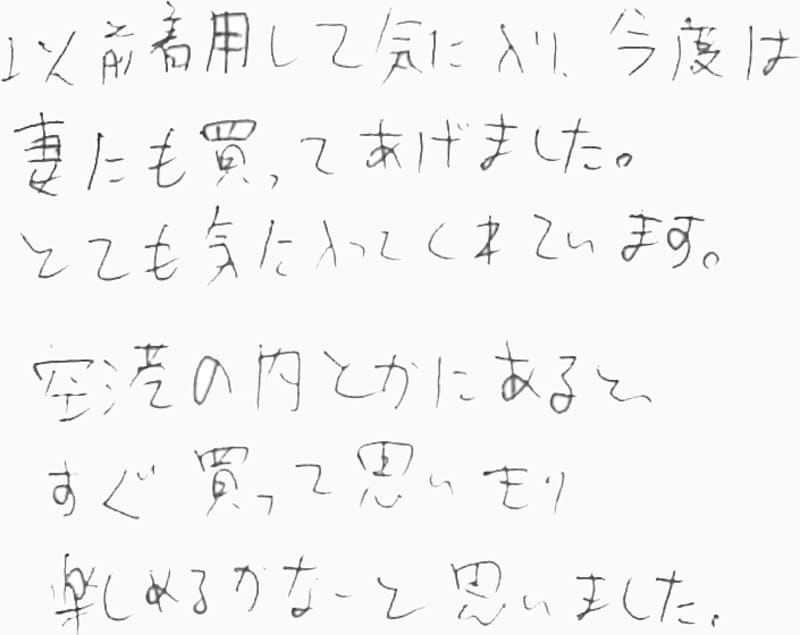 以前着用して気に入り、今度は
妻にも買ってあげました。
とても気に入ってくれています。
空港の内とかにあると、
すぐ買って思いもり
楽しめるかなーと思いました。